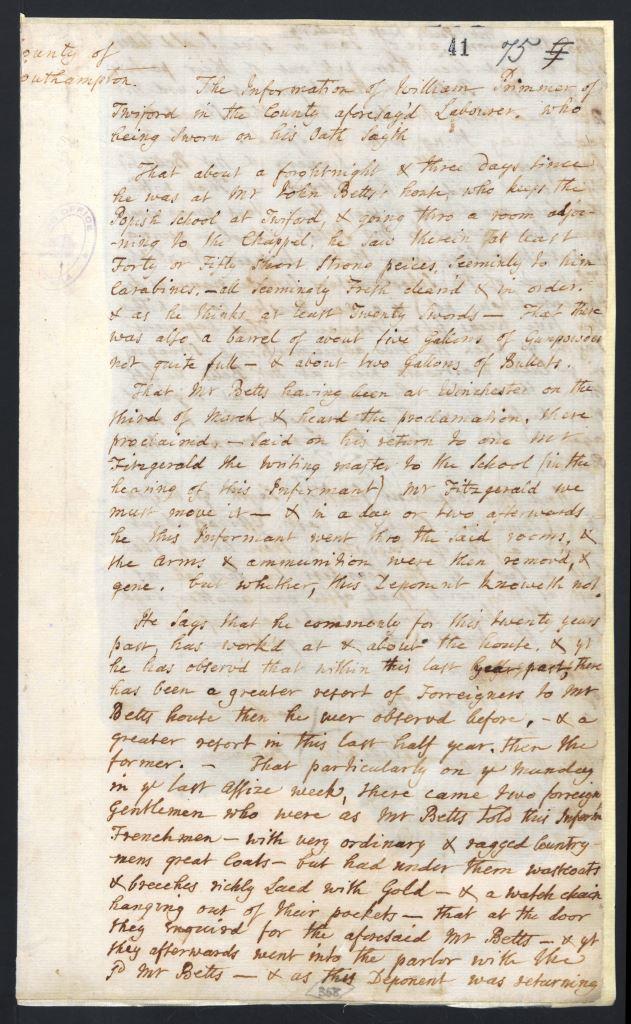 41 75
County of
Southampton.
The Information of William Primmer of
Twiford in the County aforesay'd Labourer. who
being Sworn on his Oath Sayth
That about a forghtnight & three days since
he was at Mr John Betts house, who keeps the
Popish School at Twiford, & going thro a room adjoy-
ning to the Chappel, he saw therein at least
Forty or Fifty Short Strong peices, Seeminly to him
Carabines, - all Seemingly Fresh cleand & in order.
& as he thinks at least Twenty Swords - That there
was also a barrel of about five Gallons of Gunpowder
not quite full - & about two Gallons of Bullets.
That Mr Betts having been at Winchester on the
third of March & heard the proclamation, there
proclaimed, - Said on his return to one Mr
Fitzgerald the writing master to the School (in the
hearing of this Informant) Mr Fitzgerald we
must move it - & in a day or two afterwards
he this Informant went thro the said rooms, &
the arms & ammunition were then removd, &
gone. but whether, this Deponent knoweth not.
He Says that he commonly for this twenty years
past, has work'd at & about the house, & yt
he has observd that within this last year past, there
has been a greater resort of Forreigners to Mr
Betts house then he ever observd before, - & a
greater resort in this last half year, then the
former. - That particularly on ye Munday
in ye last Assize week, there came two foreign
Gentlemen who were as Mr Betts told this Inform
Frenchmen - with very ordinary & ragged Country-
mens great Coats - but had under them wastcoats
& breeches richly Laced with Gold - & a watch chain
hanging out of their pockets - that at the door
they enquired for the aforesaid Mr Betts - & yt
they afterwards went into the parlor with the
sd Mr Betts - & as this Deponent was returning
368